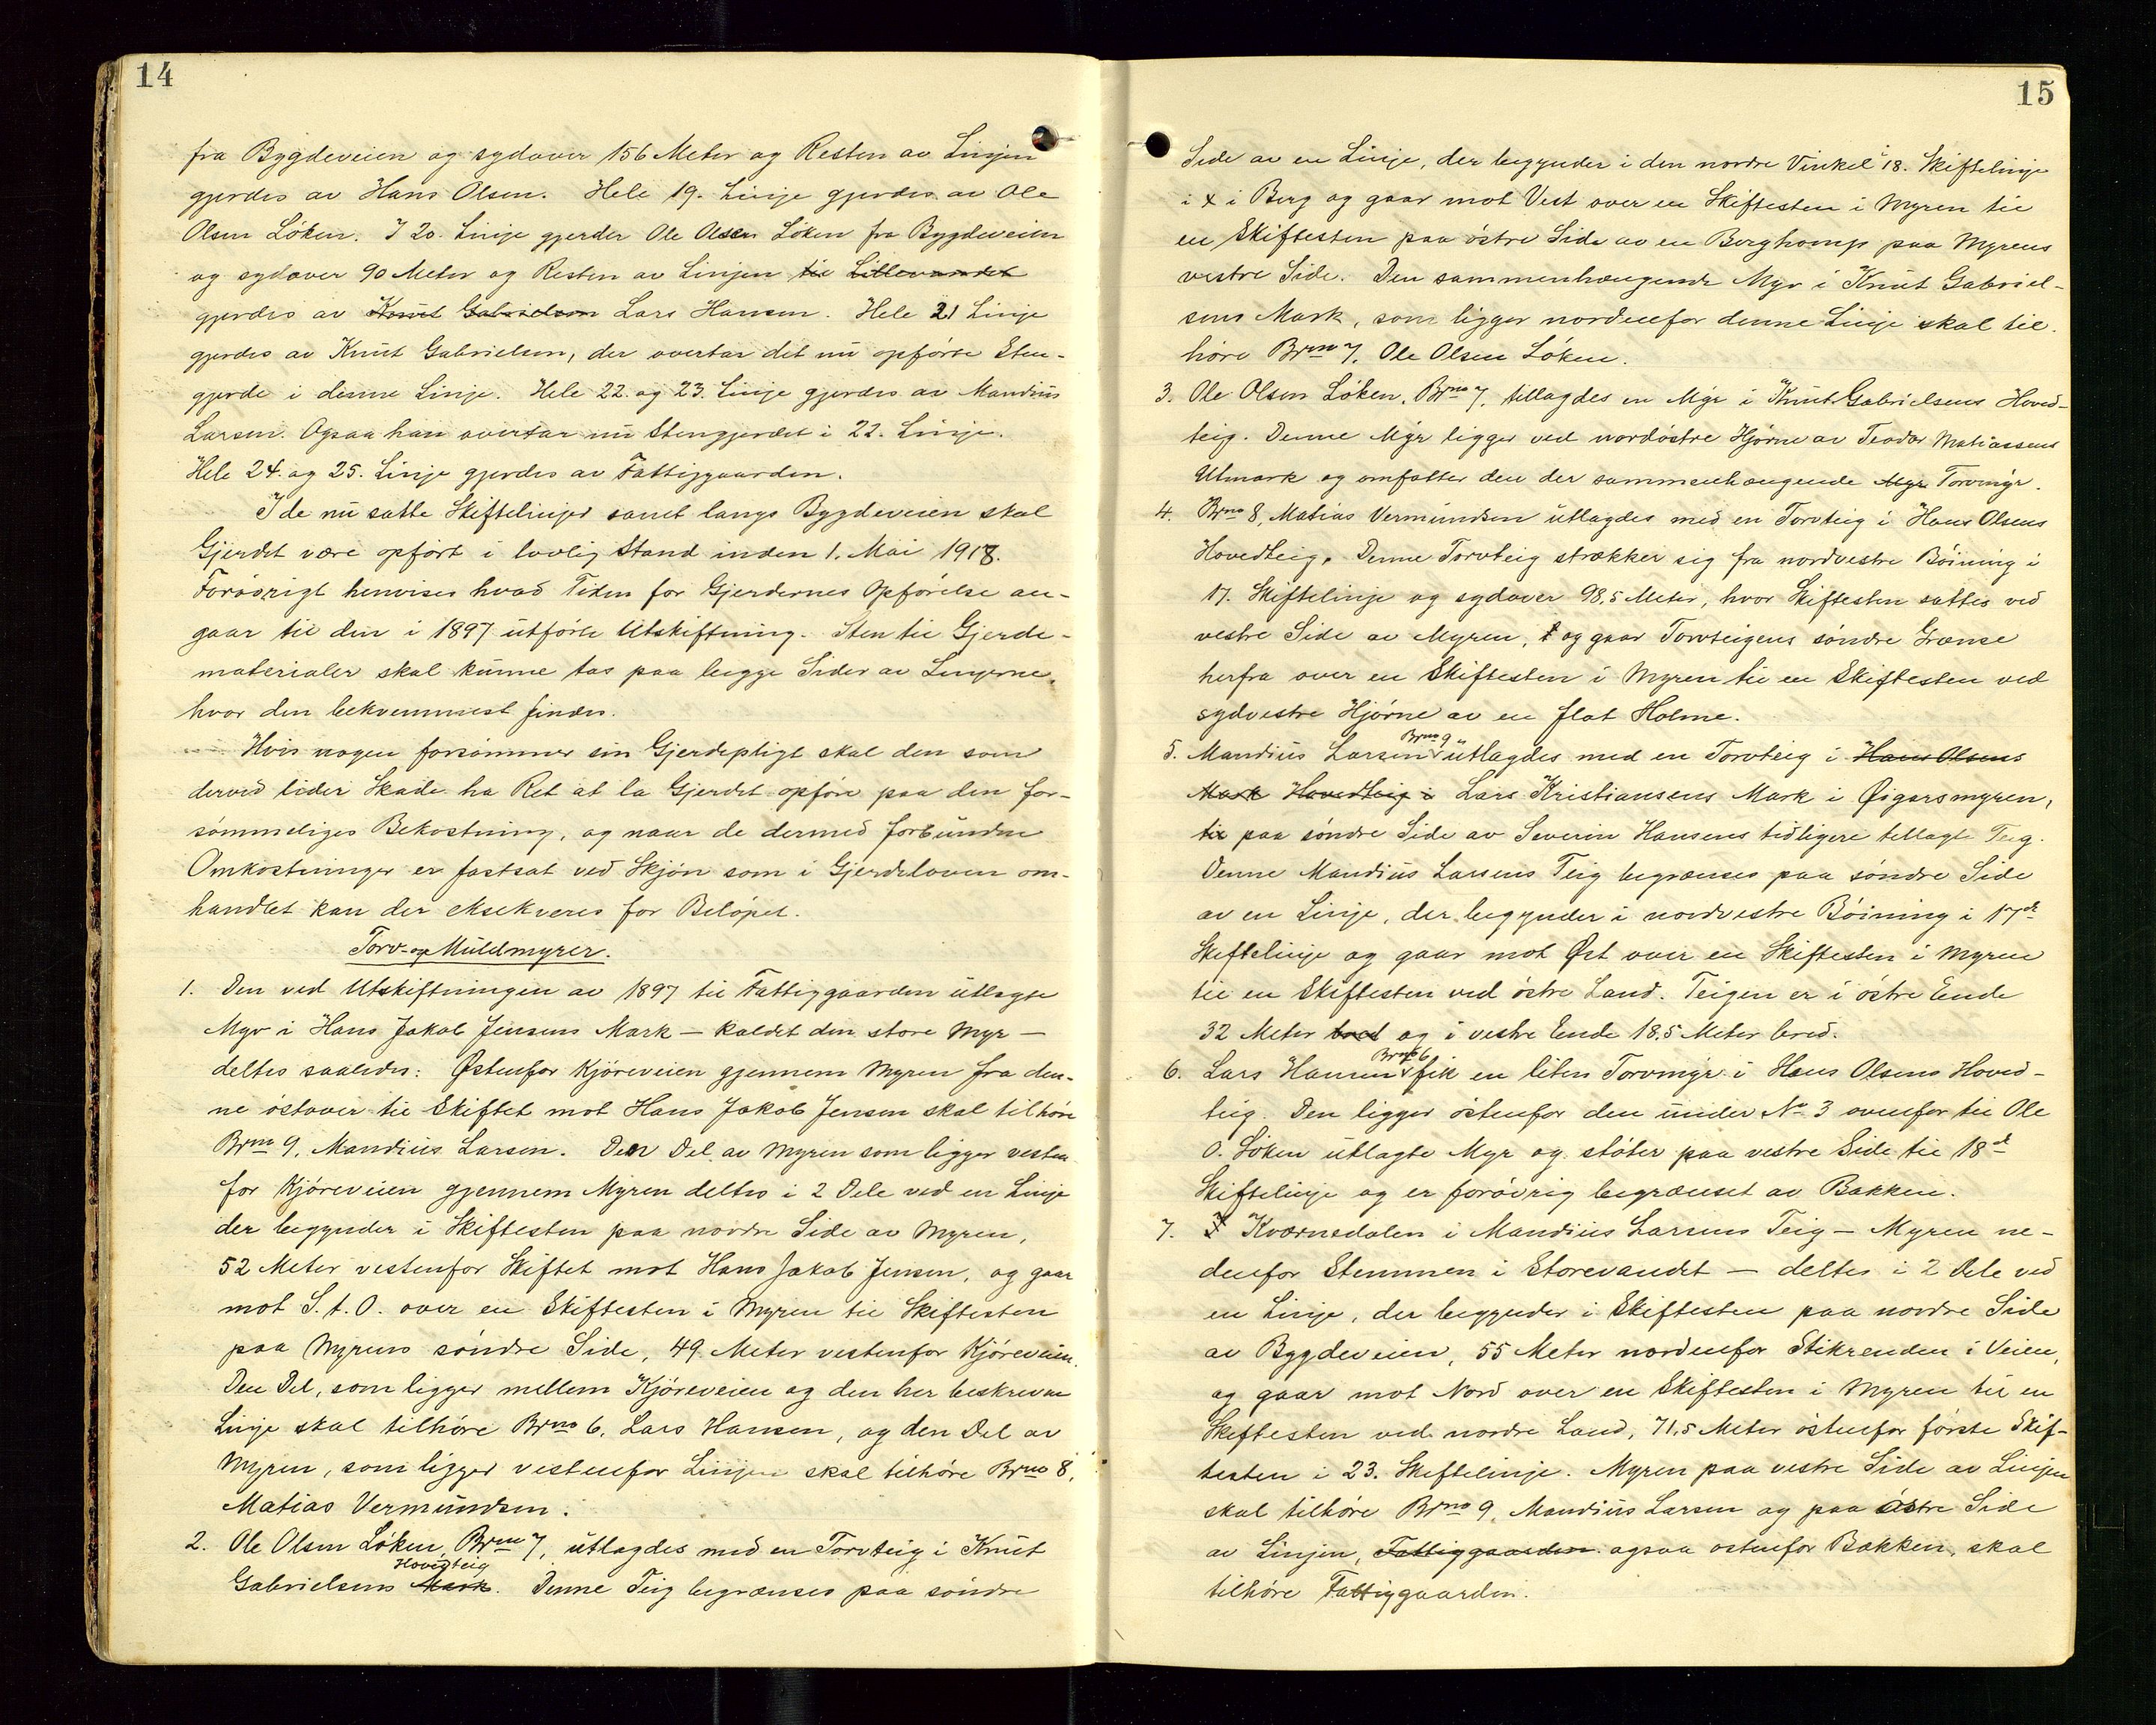 14
fra Bygdeveien og sydover 156 Meter og Resten av Linjen
gjerdes av Hans Olsen. Hele 19. Linje gjerdes av Ole
Olsen Löken. I 20. Linje gjerder Ole Olsen Löken fra Bygdeveien
og sydover 90 Meter og Resten av Linjen til Littevandet
gjerdes av Knut Gabrielsen Lars Hansen. Hele 21 Linje
gjerdes av Knut Gabrielsen, der overtar det nu opförte Sten-
gjerde i denne Linje. Hele 22. og 23. Linje gjerdes av Mandius
Larsen. Ogsaa han overtar nu Stengjerdet i 22. Linje.
Hele 24. og 25. Linje gjerdes av Fattiggaarden.
I de nu satte Skiftelinjer samt langs Bygdeveien skal
Gjerdet være opfört i lovlig Stand inden 1. Mai 1918.
Forövrigt henvises hvad Tiden for Gjerdernes Opförelse an-
gaar til den i 1897 utförte Utskiftning. Sten til Gjerde-
materialer skal kunne tas paa begge Sider av Linjerne,
hvor den bekvemmest findes.
Hvis nogen forsömmer sin Gjerdepligt skal den som
derved lider Skade ha Ret at la Gjerdet opföre paa den for-
sömmeliges Bekostning, og naar de dermed forbundne
Omkostninger er fastsat ved Skjön som i Gjerdeloven om-
handlet kan der eksekveres for Belöpet.
Torv- og Muldmyrer.
1. Den ved Utskiftningen av 1897 til Fattiggaarden utlagte
Myr i Hans Jakob Jensens Mark — kaldet den store Myr —
deltes saaledes: Østenfor Kjöreveien gjennem Myren fra den-
ne östover til Skiftet mot Hans Jakob Jensen skal tilhöre
Brno 9, Mandius Larsen. Den Del av Myren som ligger vesten
for Kjöreveien gjennem Myren deltes i 2 Dele ved en Linje
der begynder i Skiftesten paa nordre Side av Myren,
52 Meter vestenfor Skiftet mot Hans Jakob Jensen, og gaar
mot S.t.O. over en Skiftesten i Myren til Skiftesten
paa Myrens söndre Side, 49 Meter vestenfor Kjöreveien.
Den Del, som ligger mellem Kjöreveien og den her beskrevne
Linje skal tilhöre Brno 6, Lars Hansen, og den Del av
Myren, som ligger vestenfor Linjen skal tilhöre Brno 8,
Matias Vermundsen.
2. Ole Olsen Löken, Brno 7, utlagdes med en Torvteig i Knut
Hovedteig
Gabrielsens Mark. Denne Teig begrænses paa söndre
15
Side av en Linje, der begynder i den nordre Vinkel i 18. Skiftelinje
i x i Berg og gaar mot Vest over en Skiftesten i Myren til
en Skiftesten paa östre Side av en Berghomp paa Myrens
vestre Side. Den sammenhængende Myr i Knut Gabriel-
sens Mark, som ligger nordenfor denne Linje skal til-
höre Brno 7, Ole Olsen Löken.
3. Ole Olsen Löken, Brno 7, tillagdes en Myr i Knut Gabrielsens Hoved-
teig. Denne Myr ligger ved nordöstre Hjörne av Teodor Matiassens
Utmark og omfatter den der sammenhængende Myr Torvmyr.
4. Brno 8, Matias Vermundsen utlagdes med en Torvteig i Hans Olsens
Hovedteig. Denne Torvteig strækker sig fra nordvestre Böining i
17. Skiftelinje og sydover 98,5 Meter, hvor Skiftesten sattes ved
vestre Side av Myren, og gaar Torvteigens söndre Grænse
herfra over en Skiftesten i Myren til en Skiftesten ved
sydvestre Hjörne av en flat Holme.
Brno 9,
5. Mandius Larsen utlagdes med en Torvteig i Hans Olsens
Mark Hovedteig i Lars Kristiansens Mark i Øigarsmyren,
til paa söndre Side av Severin Hansens tidligere tillagte Teig.
Denne Mandius Larsens Teig begrænses paa söndre Side
av en Linje, der begynder i nordvestre Böining i 17de
Skiftelinje og gaar mot Øst over en Skiftesten i Myren
til en Skiftesten ved östre Land. Teigen er i östre Ende
32 Meter bred og i vestre Ende 18,5 Meter bred.
Brno 6
6. Lars Hansen fik en liten Torvmyr i Hans Olsens Hoved-
teig. Den ligger östenfor den under No 3 ovenfor til Ole
O. Löken utlagte Myr og stöter paa vestre Side til 18de
Skiftelinje og er forövrig begrænset av Bakken.
7. I Kværnedalen i Mandius Larsens Teig — Myren ne-
denfor Stemmen i Storevandet — deltes i 2 Dele ved
en Linje, der begynder i Skiftesten paa nordre Side
av Bygdeveien, 55 Meter nordenfor Stikrenden i Veien,
og gaar mot Nord over en Skiftesten i Myren til en
Skiftesten ved nordre Land, 71,5 Meter östenfor förste Skif-
testen i 23. Skiftelinje. Myren paa vestre Side av Linjen
skal tilhöre Brno 9, Mandius Larsen og paa östre Side
av Linjen, Fattiggaarden ogsaa östenfor Bakken, skal
tilhöre Fattiggaarden.